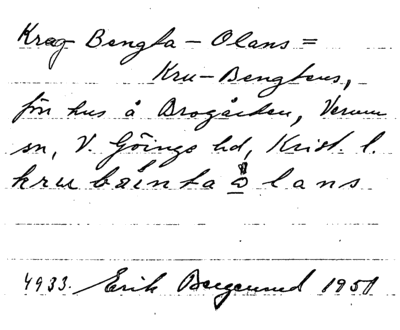 Krag Bengta – Olans =
Kru-Bengtens,
fön hus å Brogården, Verum
sn, V. Göinge hd, Krist. l.
kru bäinta o lans
4933. Erik Bergerund 1951